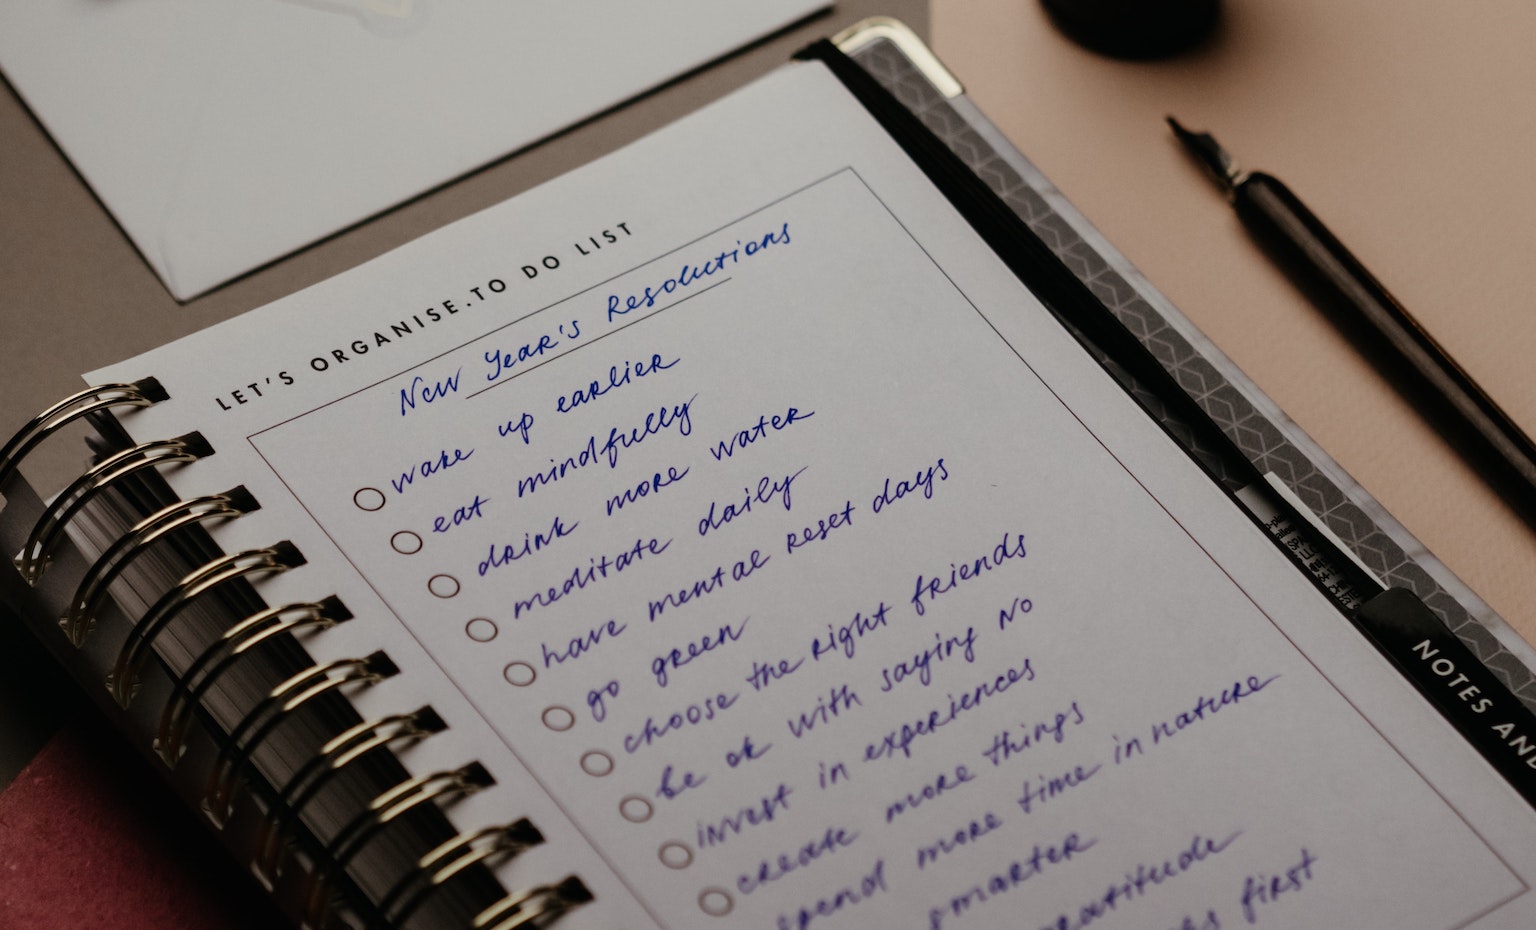 LET'S ORGANISE.TO DO LIST
New Year's Resolutions
wake up earlier
eat mindfully
drink more water
meditate daily
have mental reset days
go green
choose the right friends
be ok with saying NO
invest in experiences
create more things
spend more time in nature
smarter
gratitude
first
NOTES AND